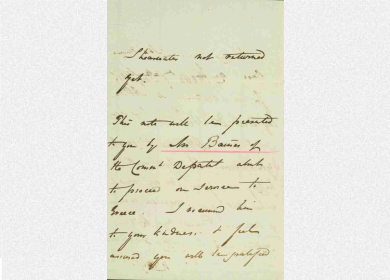 not returned
yet.
This note will be presented
to you by Mr Baines of
the Comt Depart about
to proceed on Service to
Greece I recommend him
to your kindness & feel
assured you will be gratified